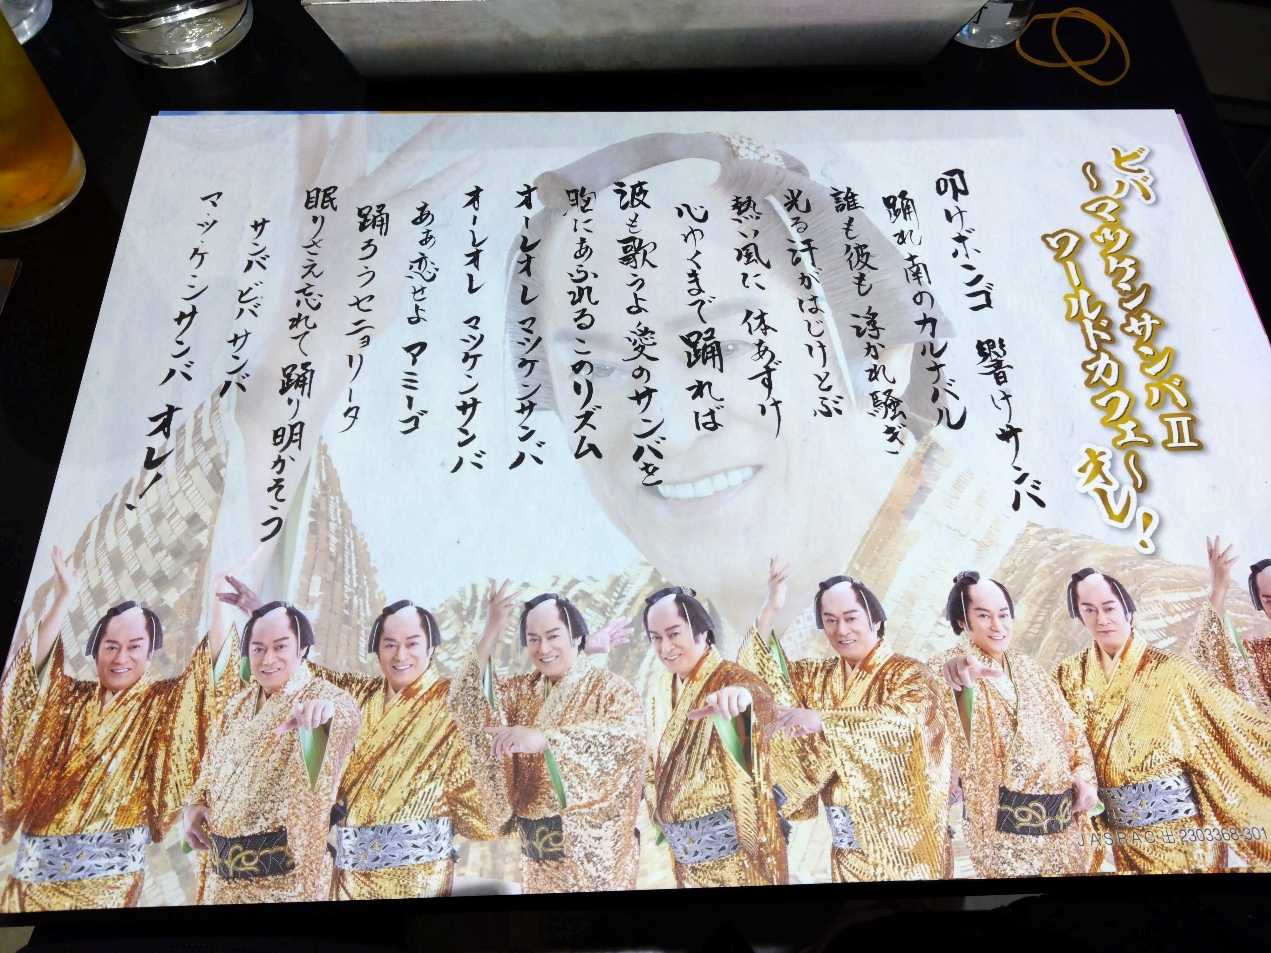 ビバ
～マツケンサンバⅡ
ワールドカフェ～
オレ！
叩けボンゴ 響けサンバ
踊れ南のカルナバル
誰も彼も浮かれ騒ぎ
光る汗がはじけとぶ
熱い風に 体あずけ
心ゆくまで踊れば
波も歌うよ愛のサンバを
胸にあふれるこのリズム
オーレオレ マツケンサンバ
オーレオレ マツケンサンバ
あぁ恋せよ アミーゴ
踊ろうセニョリータ
眠りさえ忘れて踊り明かそう
サンバ ビバ サンバ
マ・ツ・ケ・ンサンバ オレ！
JASRAC出2303368-301